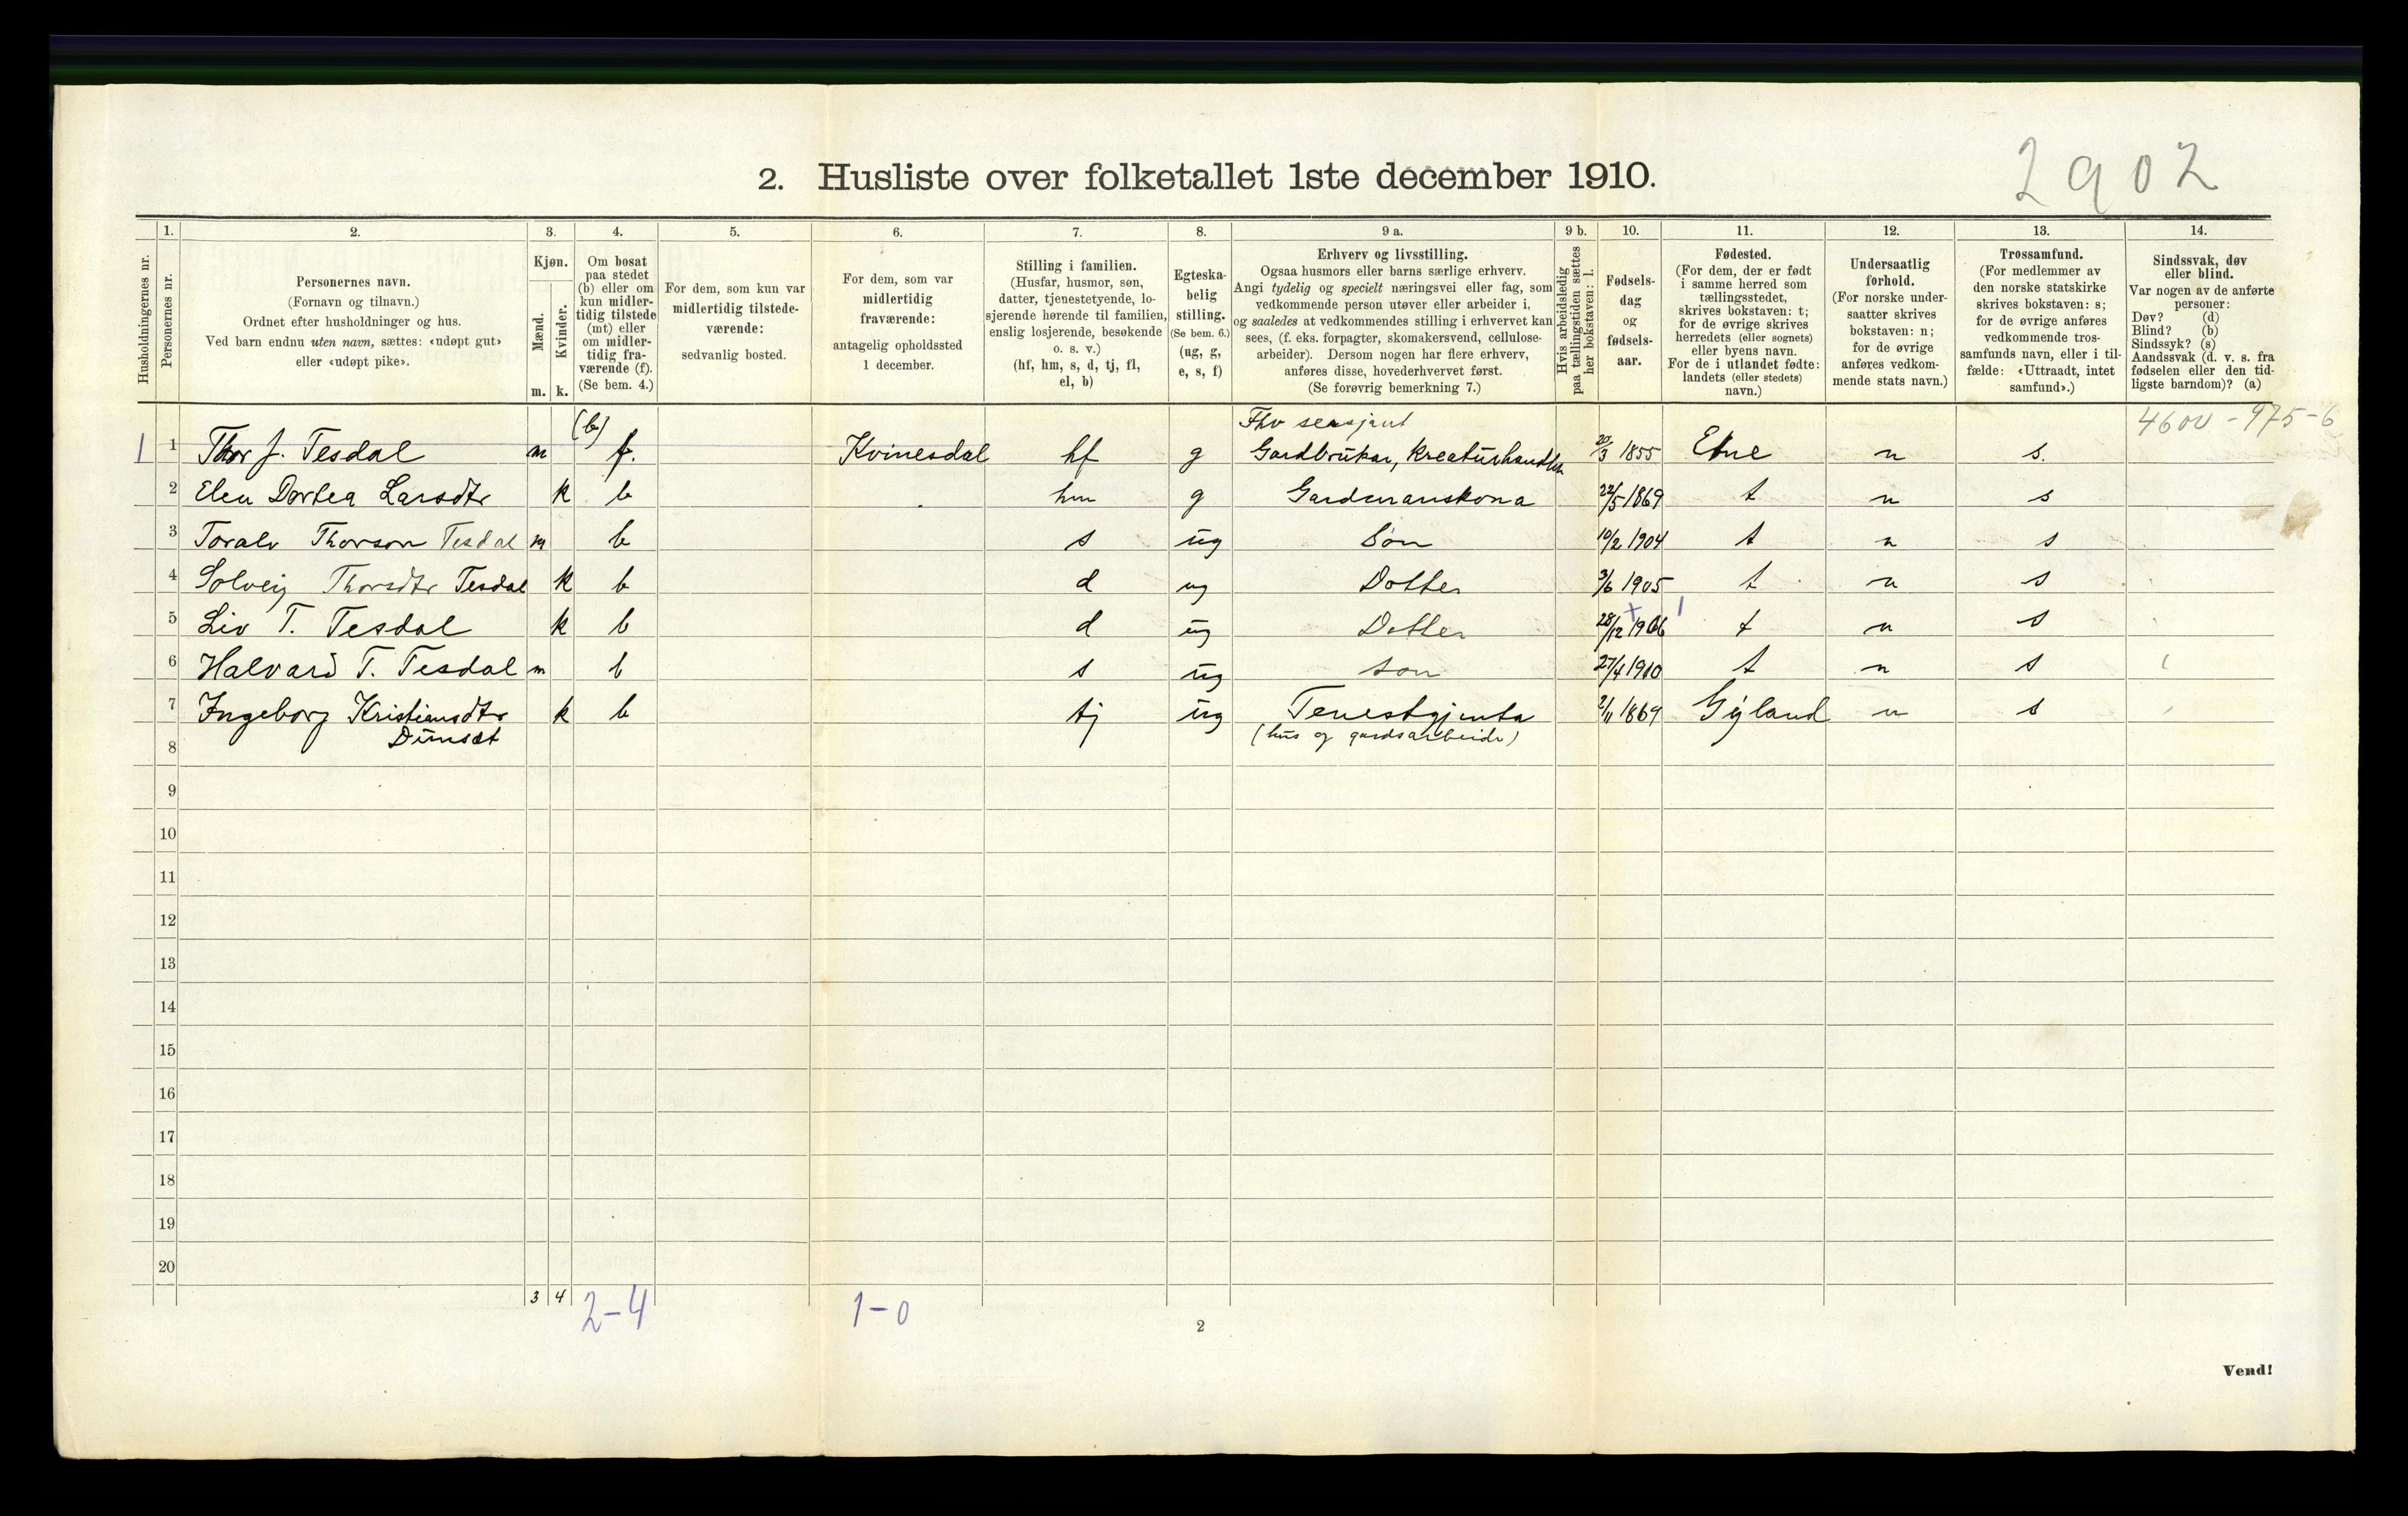 2902
2. Husliste over folketallet 1ste december 1910.
Husholdningernes nr.
1.
Personernes nr.
2.
Personernes navn.
(Fornavn og tilnavn.)
Ordnet efter husholdninger og hus.
Ved barn endnu uten navn, sættes: «udøpt gut»
eller «udøpt pike».
3.
Kjøn.
Mænd.
Kvinder.
m. k.
4.
Om bosat
paa stedet
(b) eller om
kun midler-
tidig tilstede
(mt) eller
om midler-
tidig fra-
værende (f).
(Se bem. 4.)
5.
For dem, som kun var
midlertidig tilstede-
værende:
sedvanlig bosted.
6.
For dem, som var
midlertidig
fraværende:
antagelig opholdssted
1 december.
7.
Stilling i familien.
(Husfar, husmor, søn,
datter, tjenestetyende, lo-
sjerende hørende til familien,
enslig losjerende, besøkende
o. s. v.)
(hf, hm, s, d, tj, fl,
el, b)
8.
Egteska-
belig
stilling.
(Se bem. 6.)
(ug, g,
e, s, f)
9 a.
Erhverv og livsstilling.
Ogsaa husmors eller barns særlige erhverv.
Angi tydelig og specielt næringsvei eller fag, som
vedkommende person utøver eller arbeider i,
og saaledes at vedkommendes stilling i erhvervet kan
sees, (f. eks. forpagter, skomakersvend, cellulose-
arbeider). Dersom nogen har flere erhverv,
anføres disse, hovederhvervet først.
(Se forøvrig bemerkning 7.)
9 b.
Hvis arbeidsledig
paa tællingstiden sættes
her bokstaven: l.
10.
Fødsels-
dag
og
fødsels-
aar.
11.
Fødested.
(For dem, der er født
i samme herred som
tællingsstedet,
skrives bokstaven: t;
for de øvrige skrives
herredets (eller sognets)
eller byens navn.
For de i utlandet fødte:
landets (eller stedets)
navn.)
12.
Undersaatlig
forhold.
(For norske under-
saatter skrives
bokstaven: n;
for de øvrige
anføres vedkom-
mende stats navn.)
13.
Trossamfund.
(For medlemmer av
den norske statskirke
skrives bokstaven: s;
for de øvrige anføres
vedkommende tros-
samfunds navn, eller i til-
fælde: «Uttraadt, intet
samfund».)
14.
Sindssvak, døv
eller blind.
Var nogen av de anførte
personer:
Døv? (d)
Blind? (b)
Sindssyk? (s)
Aandssvak (d. v. s. fra
fødselen eller den tid-
ligste barndom)? (a)
(b) Fhv sersjant 4600 - 975 - 6
1 1 Thor J. Tesdal m f. Kvinesdal hf g Gardbrukar, kreaturhandlar 20/3 1855 Etne n s.
2 Elen Dortea Larsdtr k b hm g Gardmanskona 22/5 1869 t n s
3 Toralv Thorson Tesdal m b s ug Son 10/2 1904 t n s
4 Solveig Thorsdtr Tesdal k b d ug Dotter 3/6 1905 t n s
5 Liv T. Tesdal k b d ug Dotter 28/12 1906 t n s
6 Halvard T. Tesdal m b s ug son 27/4 1910 t n s
7 Ingeborg Kristiansdtr k b tj ug Tenestgjenta 2/11 1869 Gyland n s
8 Dunsæt (hus og gardsarbeide)
9
10
11
12
13
14
15
16
17
18
19
20
3 4 2-4 1-0
2
Vend!